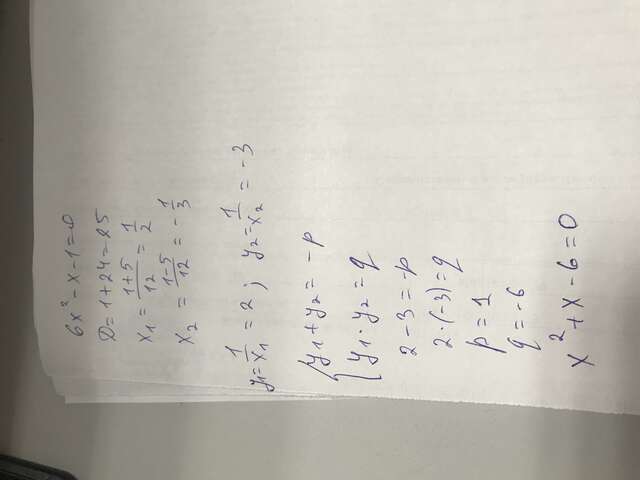 6x² - x - 1 = 0
D = 1 + 24 = 25
x₁ = \frac{1+5}{12} = \frac{1}{2}
x₂ = \frac{1-5}{12} = -\frac{1}{3}
y₁ = \frac{1}{x₁} = 2; y₂ = \frac{1}{x₂} = -3
{ y₁ + y₂ = -p
y₁ · y₂ = q
2 - 3 = -p
2 · (-3) = q
p = 1
q = -6
x² + x - 6 = 0